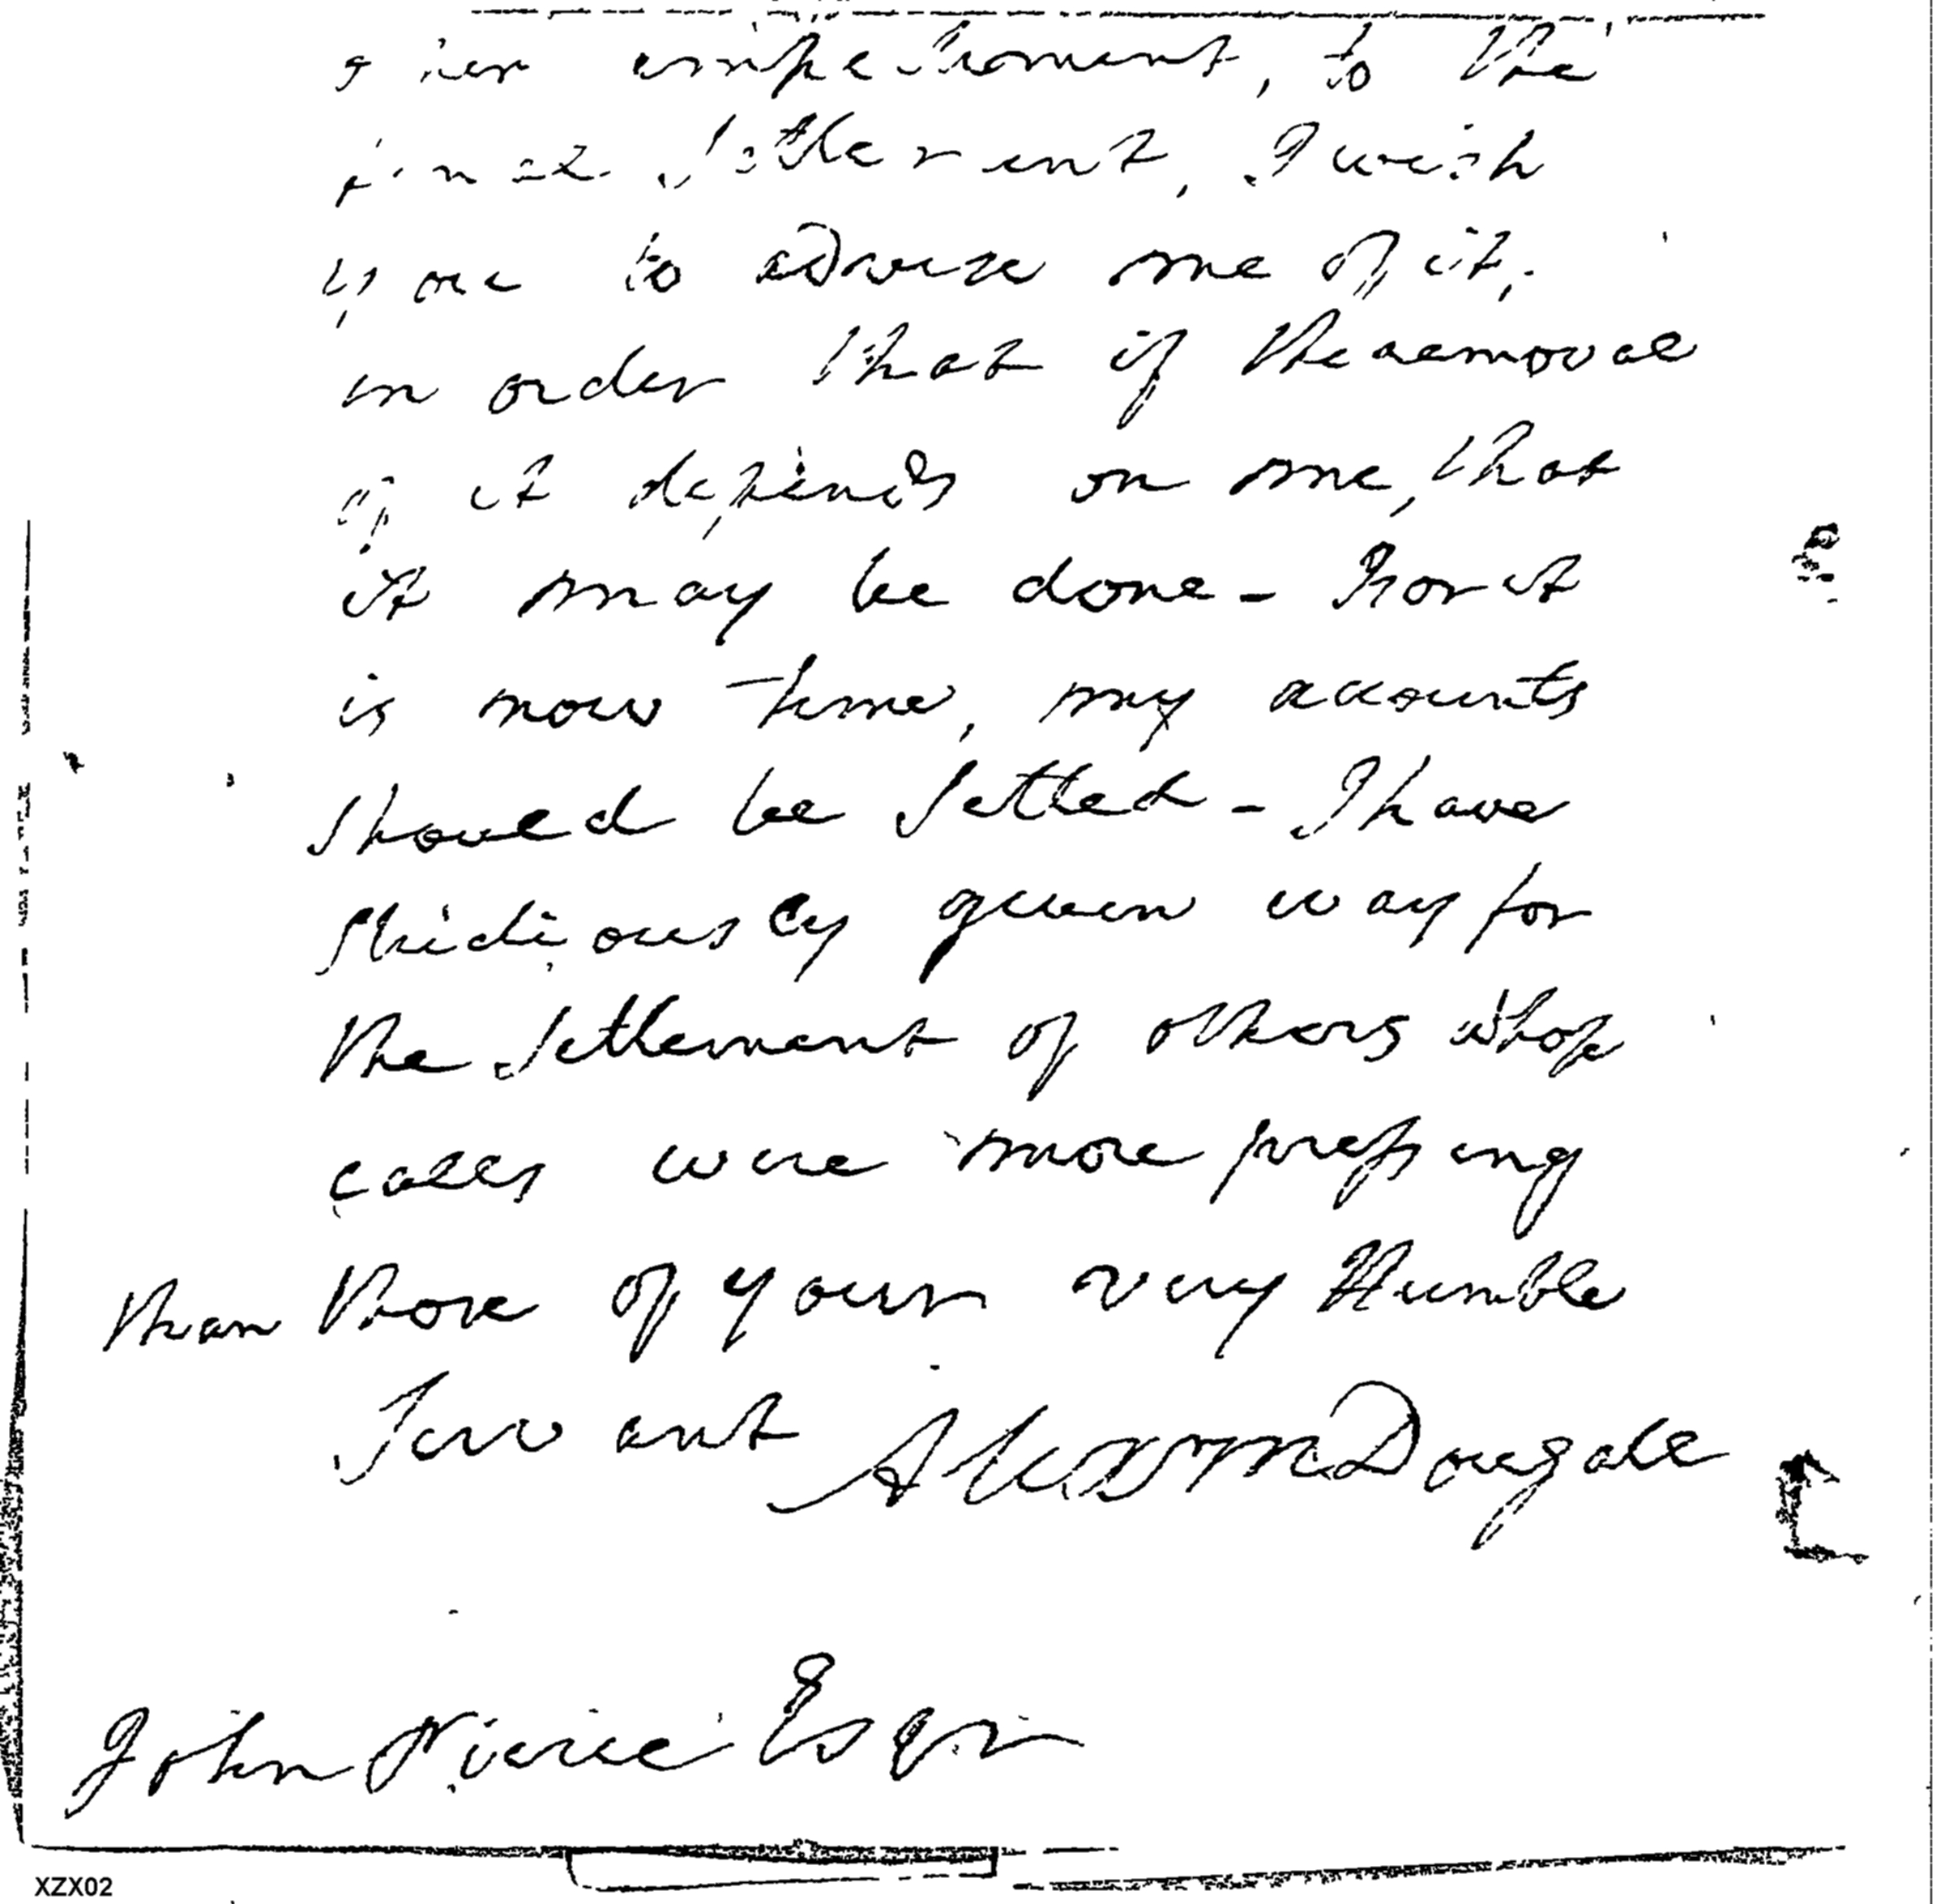 impediment, to the
final Settlement, I wish
you to advise me of it,
in order that if the removal
of it depends on me, that
it may be done - For it
is now time, my accounts
Should be Settled - I have
Studiously given way for
the Settlement of others whose
calls were more pressing
than those of your very Humble
Servant Alexr McDougall
John Pierce Esqr
XZX02